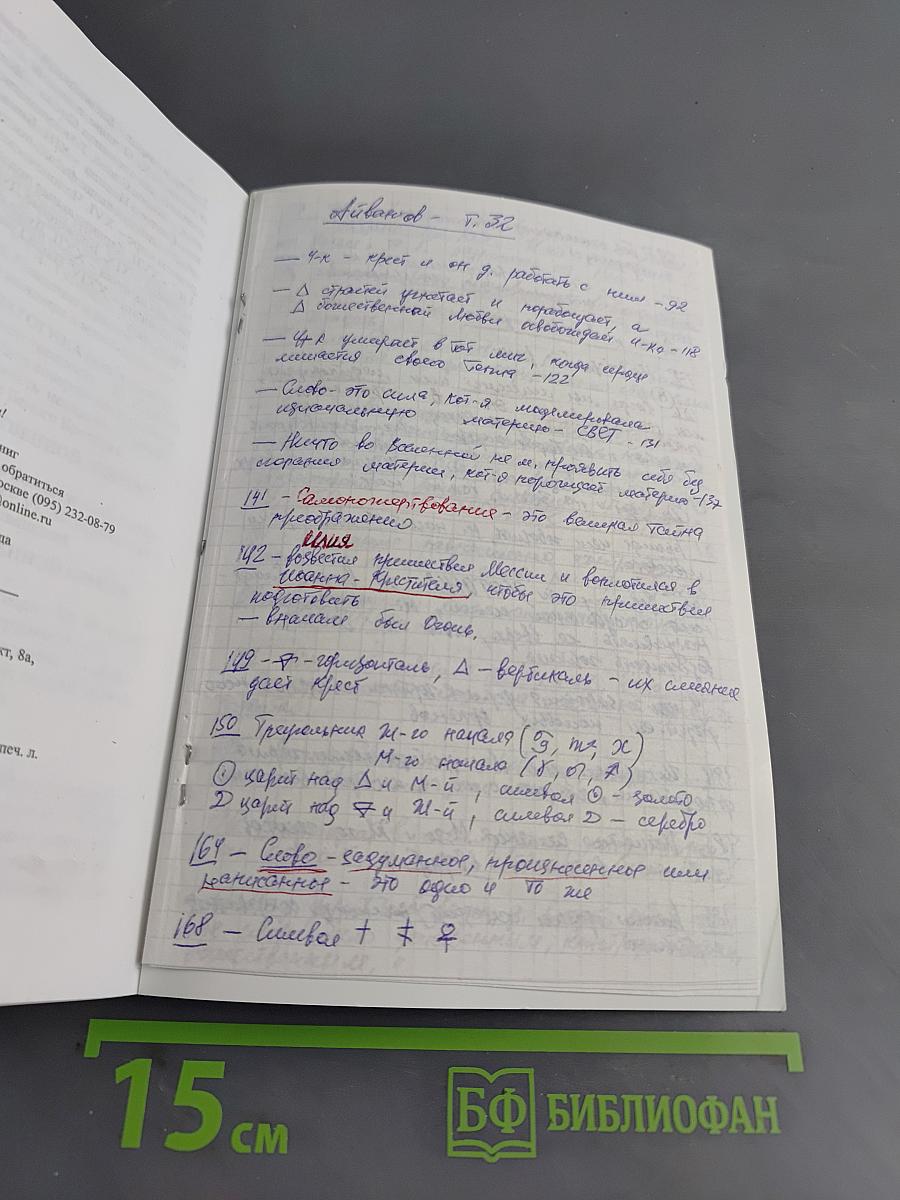 !
ниг
обратиться
оскве (095) 232-08-79
@online.ru
да
кт, 8а,
печ. л.
Айванхов - т. 32
— ч-к - крест и он д. работать с ним - 92
— Δ страстей угнетает и порабощает, а
Δ божественной любви освобождает ч-ка - 118
— Ч-к умирает в тот миг, когда сердце
лишается своего тепла - 122
— Слово - это сила, кот-я моделировала
изначальную материю - СВЕТ - 131
— Ничто во Вселенной не м. проявить себя без
сгорания материи, кот-я порождает материю - 137
141 - Самопожертвование - это великая тайна
преображения
Илия
142 - возвестил пришествие Мессии и воплотился в
Иоанна-Крестителя, чтобы это пришествие
подготовить
— вначале был Огонь.
149 - ▽ - горизонталь, Δ - вертикаль - их слияние
дает крест
150 Треугольник Ж-го начала (♉, ♍, ♓)
М-го начала (♈, ♌, ♐)
☉ царит над Δ и М-й, символ ☉ - золото
☽ царит над ▽ и Ж-й, символ ☽ - серебро
164 - Слово - задуманное, произнесенное или
написанное - это одно и то же
168 - Символ † ‡ ♀
15 см
БФ БИБЛИОФАН